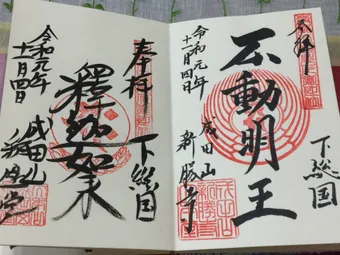 奉拝
下総国
不動明王
令和元年
十一月四日
成田山
新勝寺
奉拝
下総国
釋迦如来
令和元年
十一月四日
成田山
釋迦堂